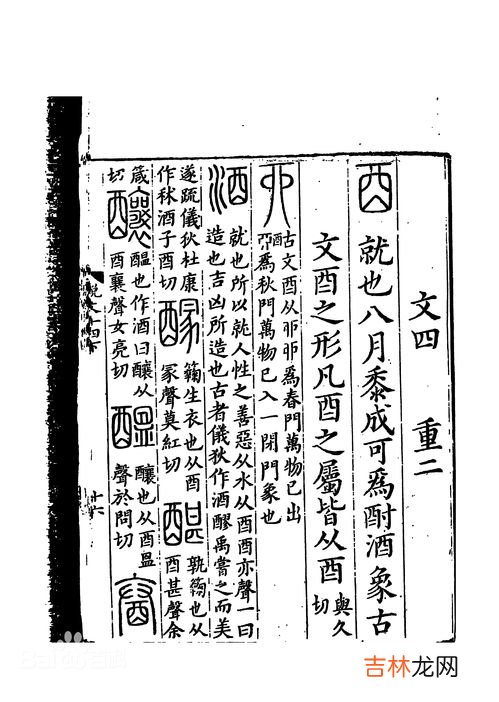 文四 重二
酉 就也八月黍成可爲酎酒象古
文酉之形凡酉之屬皆从酉 與久切
丣 古文酉从丣丣爲春門萬物已出
丣爲秋門萬物已入一閉門象也
酒 就也所以就人性之善惡从水从酉酉亦聲一曰
造也吉凶所造也古者儀狄作酒醪禹嘗之而美
遂疏儀狄杜康
作秫酒子酉切
䤓 生衣也从酉
冡聲莫紅切
孰 也从
酉甚聲余
箴
切
釀 醖也作酒曰釀从
酉襄聲女亮切
醖 釀也从酉𥁕
聲於問切
Baidu百科
吉林龙网